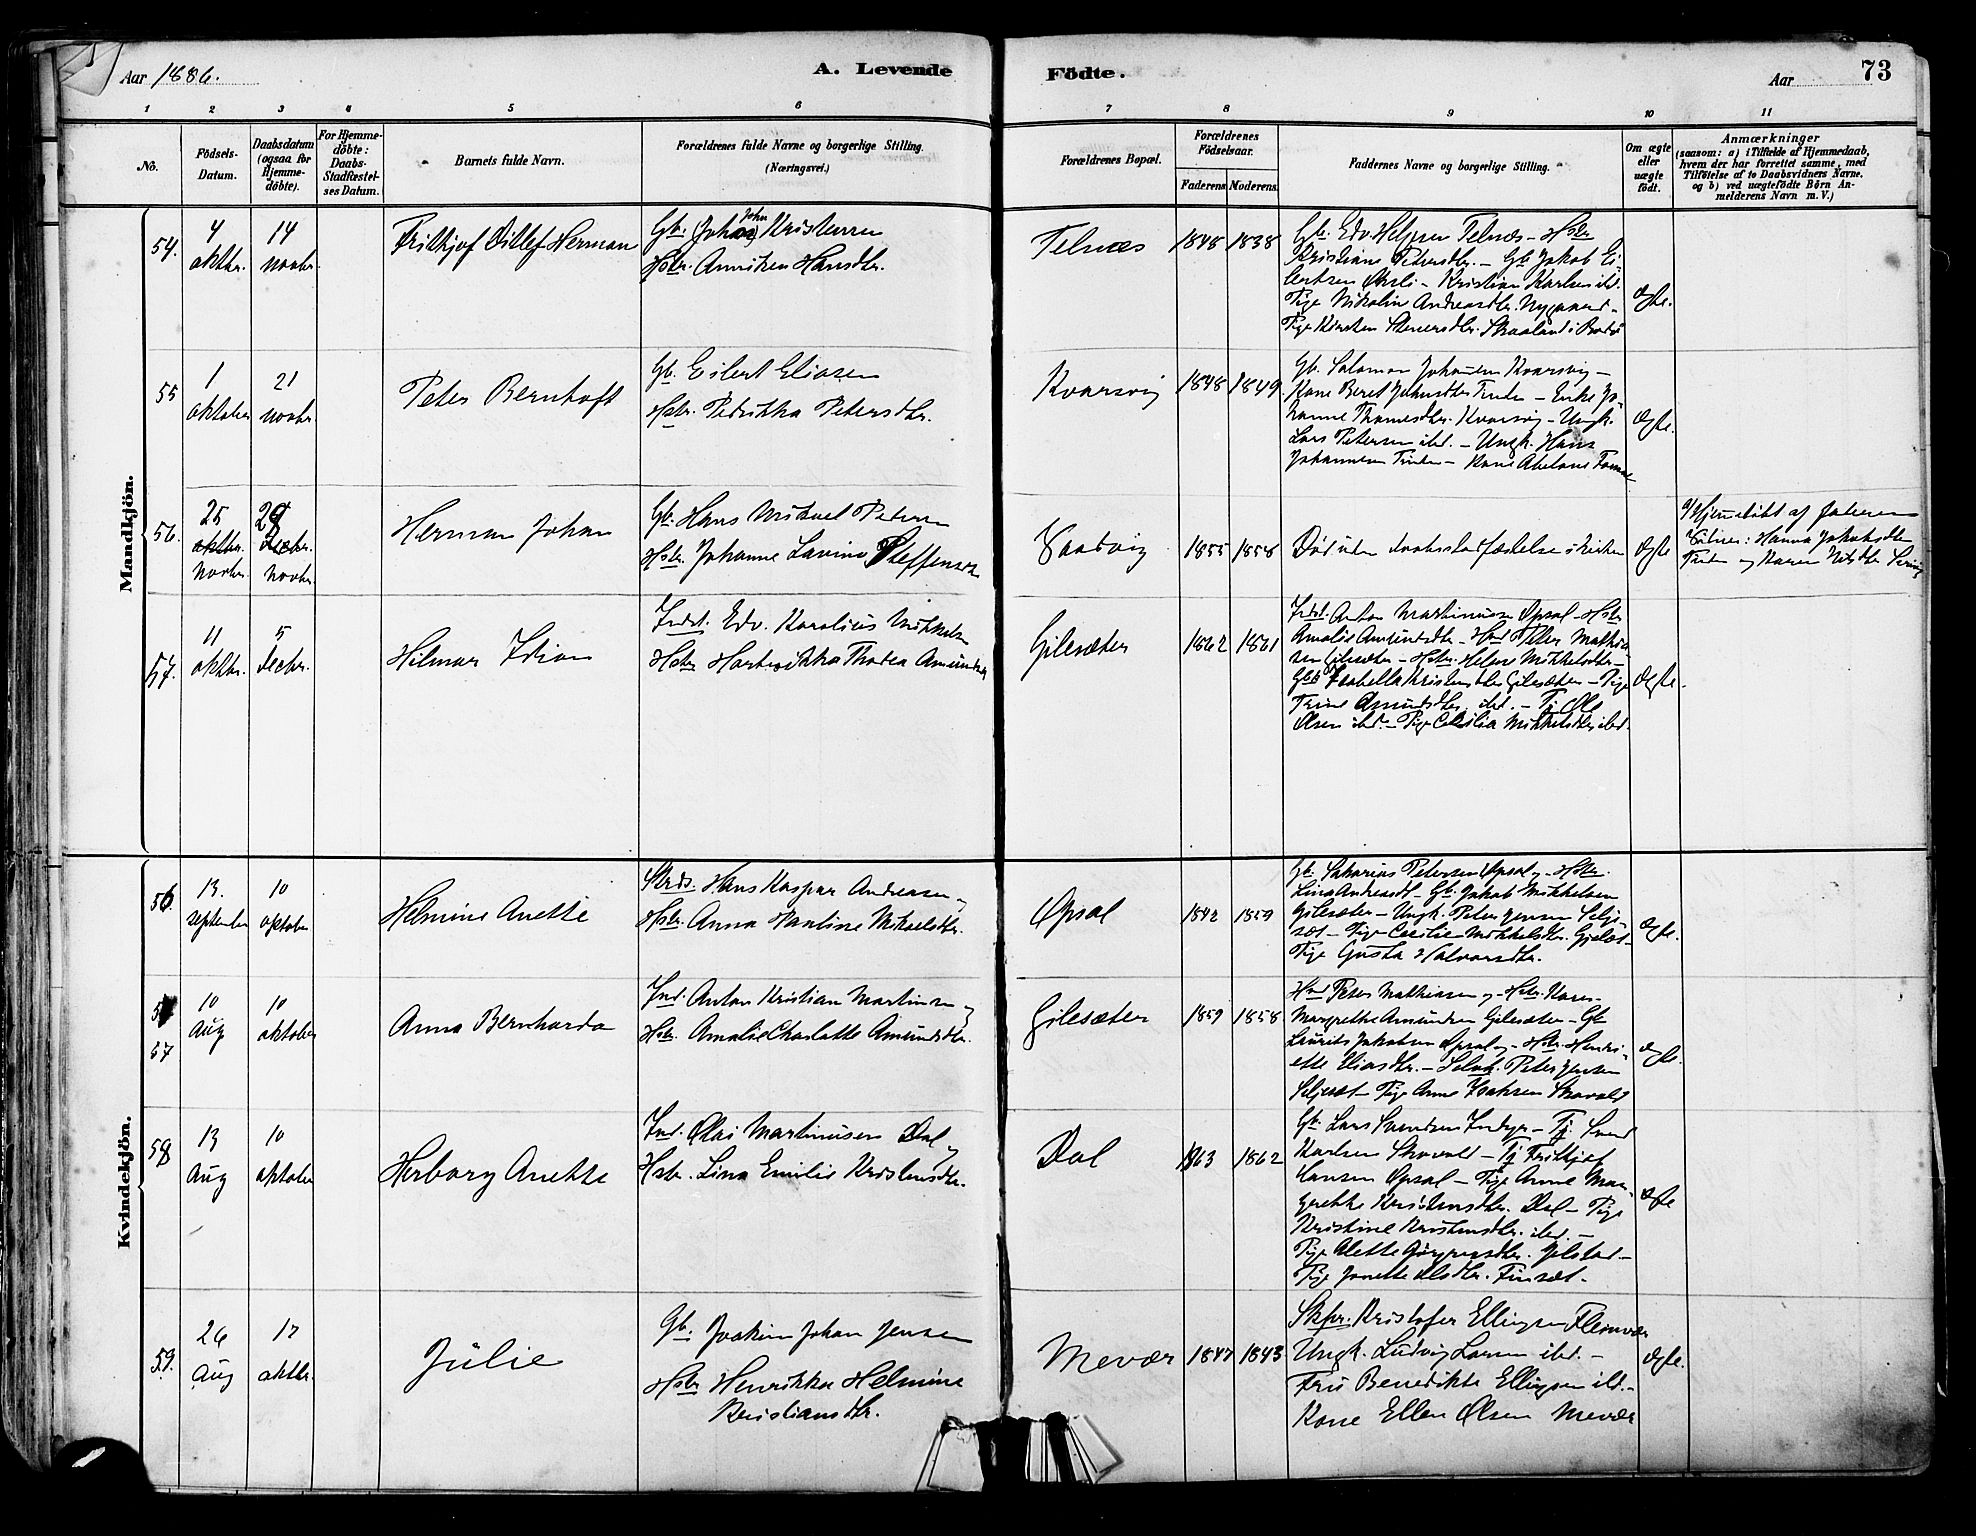 Aar 1886.
A. Levende
Födte.
Aar
73
1 2 3 4 5 6 7 8 9 10 11
No.
Födsels-
Datum.
Daabsdatum
(ogsaa for
Hjemme-
döbte).
For Hjemme-
döbte:
Daabs-
Stadfæstel-
ses Datum.
Barnets fulde Navn.
Forældrenes fulde Navne og borgerlige Stilling.
(Næringsvei.)
Forældrenes Bopæl.
Forældrenes
Födselsaar.
Faderens. Moderens.
Faddernes Navne og borgerlige Stilling.
Om ægte
eller
uægte
födt.
Anmærkninger
(saasom: a) i Tilfælde af Hjemmedaab,
hvem der har forrettet samme, med
Tilföielse af to Daabsvidners Navne.
og b) ved uægtefödte Börn An-
melderens Navn m. V.)
Mandkjön.
54.
4
oktbr.
14
novbr.
Frithjof Ditlef Herman
John
Gb. (Johan) Kristensen
Hstr. Anniken Hansdtr.
Telnæs
1848 1838
Gb. Edv. Helgesen Telnæs - Hstr.
Kristiane Petersdtr. - Gb. Jakob Ei-
lertsen - Kristian Karlsen ibd.
Pige Nikolin Andreasdtr. Nygaard -
Pige Kirsten
ægte.
55
1
oktober
21
novbr.
Peter Bernhoft
Gb. Eilert Eliasen
Hstr. Petrikka Petersdtr.
Kvarsvig
1848 1849
Gb. Salomon Johansen Kvarsvig -
Kone Beret - Enke Jo-
hanne Thomesdtr. Kvarsvig - Ungk.
Lars Petersen ibd. - Ungk. Hans
Johannesen - Kone Abelone
ægte.
56.
25
oktbr.
novbr.
28
decbr.
novbr.
Herman Johan
Gb. Hans Mikael Petersen
Hstr. Johanne Lavina Steffensen
1855 1858
Död uden daabsstadfæstelse i kirken
ægte
Hjemmedöbt af faderen
Vidner: Hanna Jakobsdtr.
og Karen
57.
11
oktbr.
5
decbr.
Hilmar Idian
Indst. Edv. Karelius Mikkelsen
Hstr. Hartvikka Thodea Amundsdtr
Gilesæter
1862 1861
Indst. Anton Martinusen Opsal - Hstr
Amalie Amundsdtr - Hmd Peter Mathia-
sen Gilesæter - Hstr. Helene Mikkelsdtr -
Isabella Kristensdtr Gilesæter - Pige
Trine Amundsdtr. ibd. - Tj Ole
Olsen ibd. - Pige Cecilia Mikkelsdtr ibd.
ægte.
Kvindekjön.
56
13.
september
10
oktober
Helmine Anette
Strds. Hans Kaspar Andreasen og
Hstr. Anna Pauline Mikaelsdtr.
Opsal
1842 1859
Gb. Sakarias Petersen Opsal og Hstr.
Lina Andreasdt - Gb. Jakob Mikkelsen
Gilesæter - Ungk. Peter Jensen Selje-
sæt - Pige Cecilie Mikkelsdtr. Gjelset -
Pige Gusta Halvorsdtr.
ægte.
57
10
Aug
10
oktober
Anna Bernharda
Ind. Anton Kristian Martinsen og
Hstr. Amalie Charlotte Amundsdtr.
Gilesæter
1859 1858
Hmd Peter Mathiasen og Hstr. Karen
Margrethe Amundsen Gilesæter - Gb
Laurits Jakobsen Opsal og Hstr. Henri-
ette Eliasdtr. - Selvk. Peter Jensen
Seljesæt - Pige Anne Isaksen Skavold
ægte.
58
13
Aug
10
oktober
Herborg Anette
Ind. Olai Martinusen Dal og
Hstr. Lina Emilie Kristensdtr.
Dal
1863 1862
Gb. Lars Svendsen - Tj Svend
Karlsen Skavold - Tj Frithjof
Hansen Opsal - Pige Anne Mar-
grethe Kristensdtr. Dal - Pige
Kristine Kristensdtr. ibd. -
Pige Alette Jörgensdtr. Jelstad -
Pige Janette Olsdtr. Finsæt -
ægte
59.
26
Aug
17
oktbr.
Julie
Gb. Joakim Johan Jensen
Hstr Henrikka Helmine
Kristiansdtr.
Mevær
1847 1843
Skpr. Kristofer Ellingsen Fleinvær
Ungk. Ludvig Larsen ibd. -
Fru Benedikte Ellingsen ibd. -
Kone Ellen Olsen Mevær
ægte.